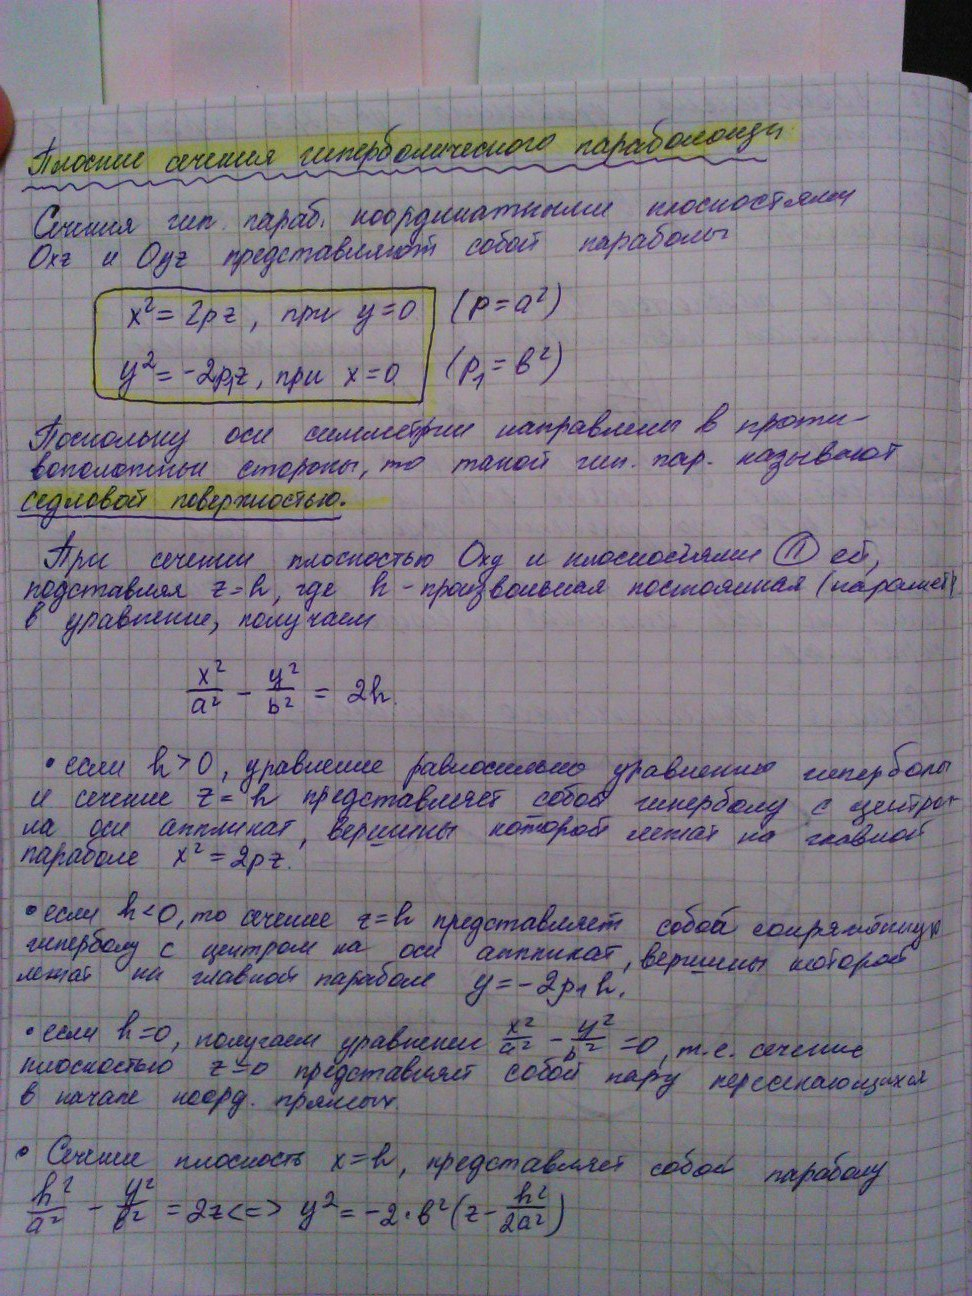 Плоские сечения гиперболического параболоида
Сечения гип. параб. координатными плоскостями
Oxz и Oyz представляют собой параболы
x² = 2pz, при y=0 (p=a²)
y² = -2p₁z, при x=0 (p₁=b²)
Поскольку оси симметрии направлены в проти-
воположные стороны, то такой гип. пар. называют
седловой поверхностью.
При сечении плоскостью Oxy и плоскостями ∥ ей,
подставляя z=h, где h - произвольная постоянная (параметр)
в уравнение, получаем
x²/a² - y²/b² = 2h.
• если h>0, уравнение равносильно уравнению гиперболы
и сечение z=h представляет собой гиперболу с центром
на оси аппликат, вершины которой лежат на главной
параболе x²=2pz.
• если h<0, то сечение z=h представляет собой сопряжённую
гиперболу с центром на оси аппликат, вершины которой
лежат на главной параболе y=-2p₁h.
• если h=0, получаем уравнение x²/a² - y²/b² =0, т.е. сечение
плоскостью z=0 представляет собой пару пересекающихся
в начале коорд. прямых.
• Сечение плоскость x=h, представляет собой параболу
h²/a² - y²/b² = 2z <=> y² = -2·b²(z - h²/2a²)